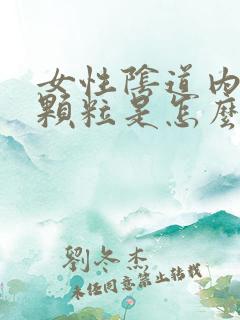 女性陰道内
顆粒是怎麽
劉冬杰
未经同意禁止转载